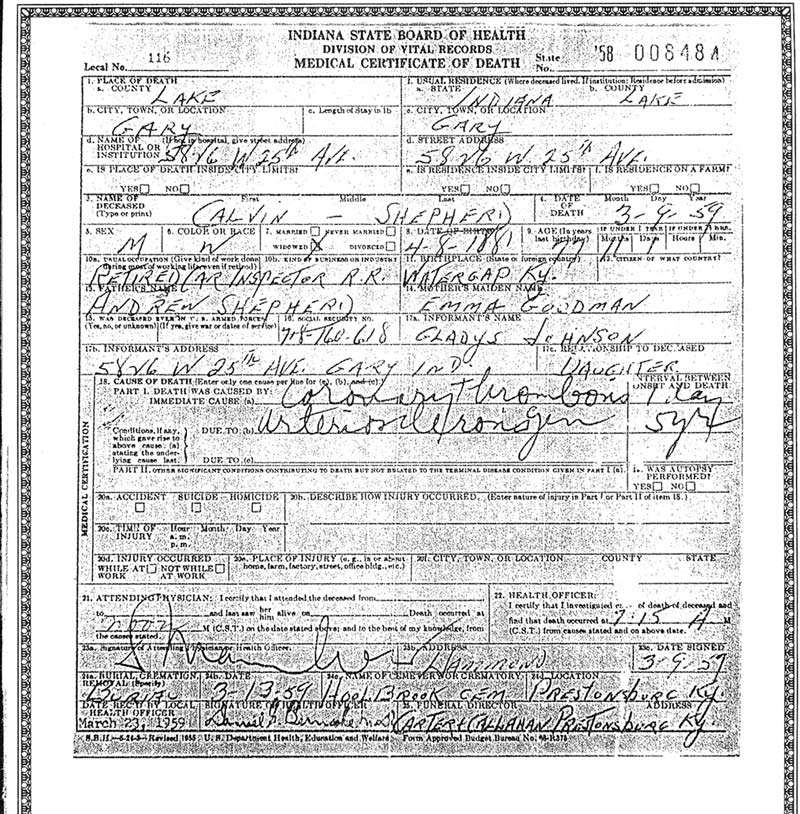 INDIANA STATE BOARD OF HEALTH
DIVISION OF VITAL RECORDS
MEDICAL CERTIFICATE OF DEATH
Local No. 116
State No. '58 008484
1. PLACE OF DEATH
a. COUNTY LAKE
2. USUAL RESIDENCE (Where deceased lived. If institution: Residence before admission)
a. STATE INDIANA b. COUNTY LAKE
b. CITY, TOWN, OR LOCATION GARY
c. Length of Stay in 1b
c. CITY, TOWN, OR LOCATION GARY
d. NAME OF HOSPITAL OR INSTITUTION (If not in hospital, give street address) 5826 W 25th AVE.
d. STREET ADDRESS 5826 W. 25th AVE.
e. IS PLACE OF DEATH INSIDE CITY LIMITS? YES NO
e. IS RESIDENCE INSIDE CITY LIMITS? YES NO
f. IS RESIDENCE ON A FARM? YES NO
3. NAME OF DECEASED (Type or print) First Middle Last
CALVIN — SHEPHERD
4. DATE OF DEATH Month Day Year
3-9-59
5. SEX M
6. COLOR OR RACE W
7. MARRIED NEVER MARRIED WIDOWED X DIVORCED
8. DATE OF BIRTH 4-8-1881
9. AGE (In years last birthday) IF UNDER 1 YEAR Months Days IF UNDER 24 HRS. Hours Min.
10a. USUAL OCCUPATION (Give kind of work done during most of working life, even if retired) RETIRED CAR INSPECTOR
10b. KIND OF BUSINESS OR INDUSTRY R.R.
11. BIRTHPLACE (State or foreign country) WATERGAP KY.
12. CITIZEN OF WHAT COUNTRY?
13. FATHER'S NAME ANDREW SHEPHERD
14. MOTHER'S MAIDEN NAME EMMA GOODMAN
15. WAS DECEASED EVER IN U. S. ARMED FORCES? (Yes, no, or unknown) (If yes, give war or dates of service)
16. SOCIAL SECURITY NO.
17a. INFORMANT'S NAME GLADYS JOHNSON
17b. INFORMANT'S ADDRESS 5826 W 25th AVE. GARY IND.
17c. RELATIONSHIP TO DECEASED DAUGHTER
MEDICAL CERTIFICATION
18. CAUSE OF DEATH (Enter only one cause per line for (a), (b), and (c).)
PART I. DEATH WAS CAUSED BY:
IMMEDIATE CAUSE (a) Coronary Thrombosis
INTERVAL BETWEEN ONSET AND DEATH 1 day
Conditions, if any, which gave rise to above cause (a) stating the underlying cause last.
DUE TO (b) 5 yr
DUE TO (c)
PART II. OTHER SIGNIFICANT CONDITIONS CONTRIBUTING TO DEATH BUT NOT RELATED TO THE TERMINAL DISEASE CONDITION GIVEN IN PART I (a).
19. WAS AUTOPSY PERFORMED? YES NO
20a. ACCIDENT SUICIDE HOMICIDE
20b. DESCRIBE HOW INJURY OCCURRED. (Enter nature of injury in Part I or Part II of item 18.)
20c. TIME OF INJURY Hour Month Day Year
a. m.
p. m.
20d. INJURY OCCURRED WHILE AT WORK NOT WHILE AT WORK
20e. PLACE OF INJURY (e. g., in or about home, farm, factory, street, office bldg., etc.)
20f. CITY, TOWN, OR LOCATION COUNTY STATE
21. ATTENDING PHYSICIAN: I certify that I attended the deceased from
to and last saw her him alive on Death occurred at
M (C.S.T.) on the date stated above; and to the best of my knowledge, from the causes stated.
22. HEALTH OFFICER:
I certify that I investigated cause of death of deceased and find that death occurred at 7:15 A M
(C.S.T.) from causes stated and on above date.
23a. Signature of Attending Physician or Health Officer.
23b. ADDRESS HAMMOND
23c. DATE SIGNED 3-9-59
24a. BURIAL, CREMATION, REMOVAL (Specify) BURIAL
24b. DATE 3-13-59
24c. NAME OF CEMETERY OR CREMATORY
24d. LOCATION PRESTONSBURG KY.
DATE REC'D BY LOCAL HEALTH OFFICER March 23, 1959
SIGNATURE OF HEALTH OFFICER
25. FUNERAL DIRECTOR ADDRESS
CARTER & CALLAHAN PRESTONSBURG KY
S.B.H.—6-24-3—Revised 1955 U. S. Department Health, Education and Welfare Form Approved Budget Bureau No. 68-R375